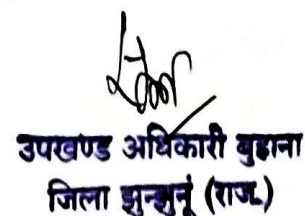 उपखण्ड अधिकारी बुहाना
जिला झुन्झुनूं (राज.)